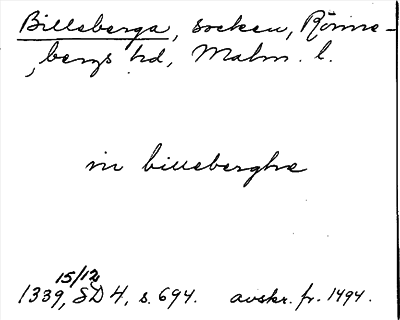 Billeberga, socken, Rönne-
bergs hd, Malm. l.
in billeberghe
15/12
1339, SD 4, s. 694. avskr. fr. 1494.